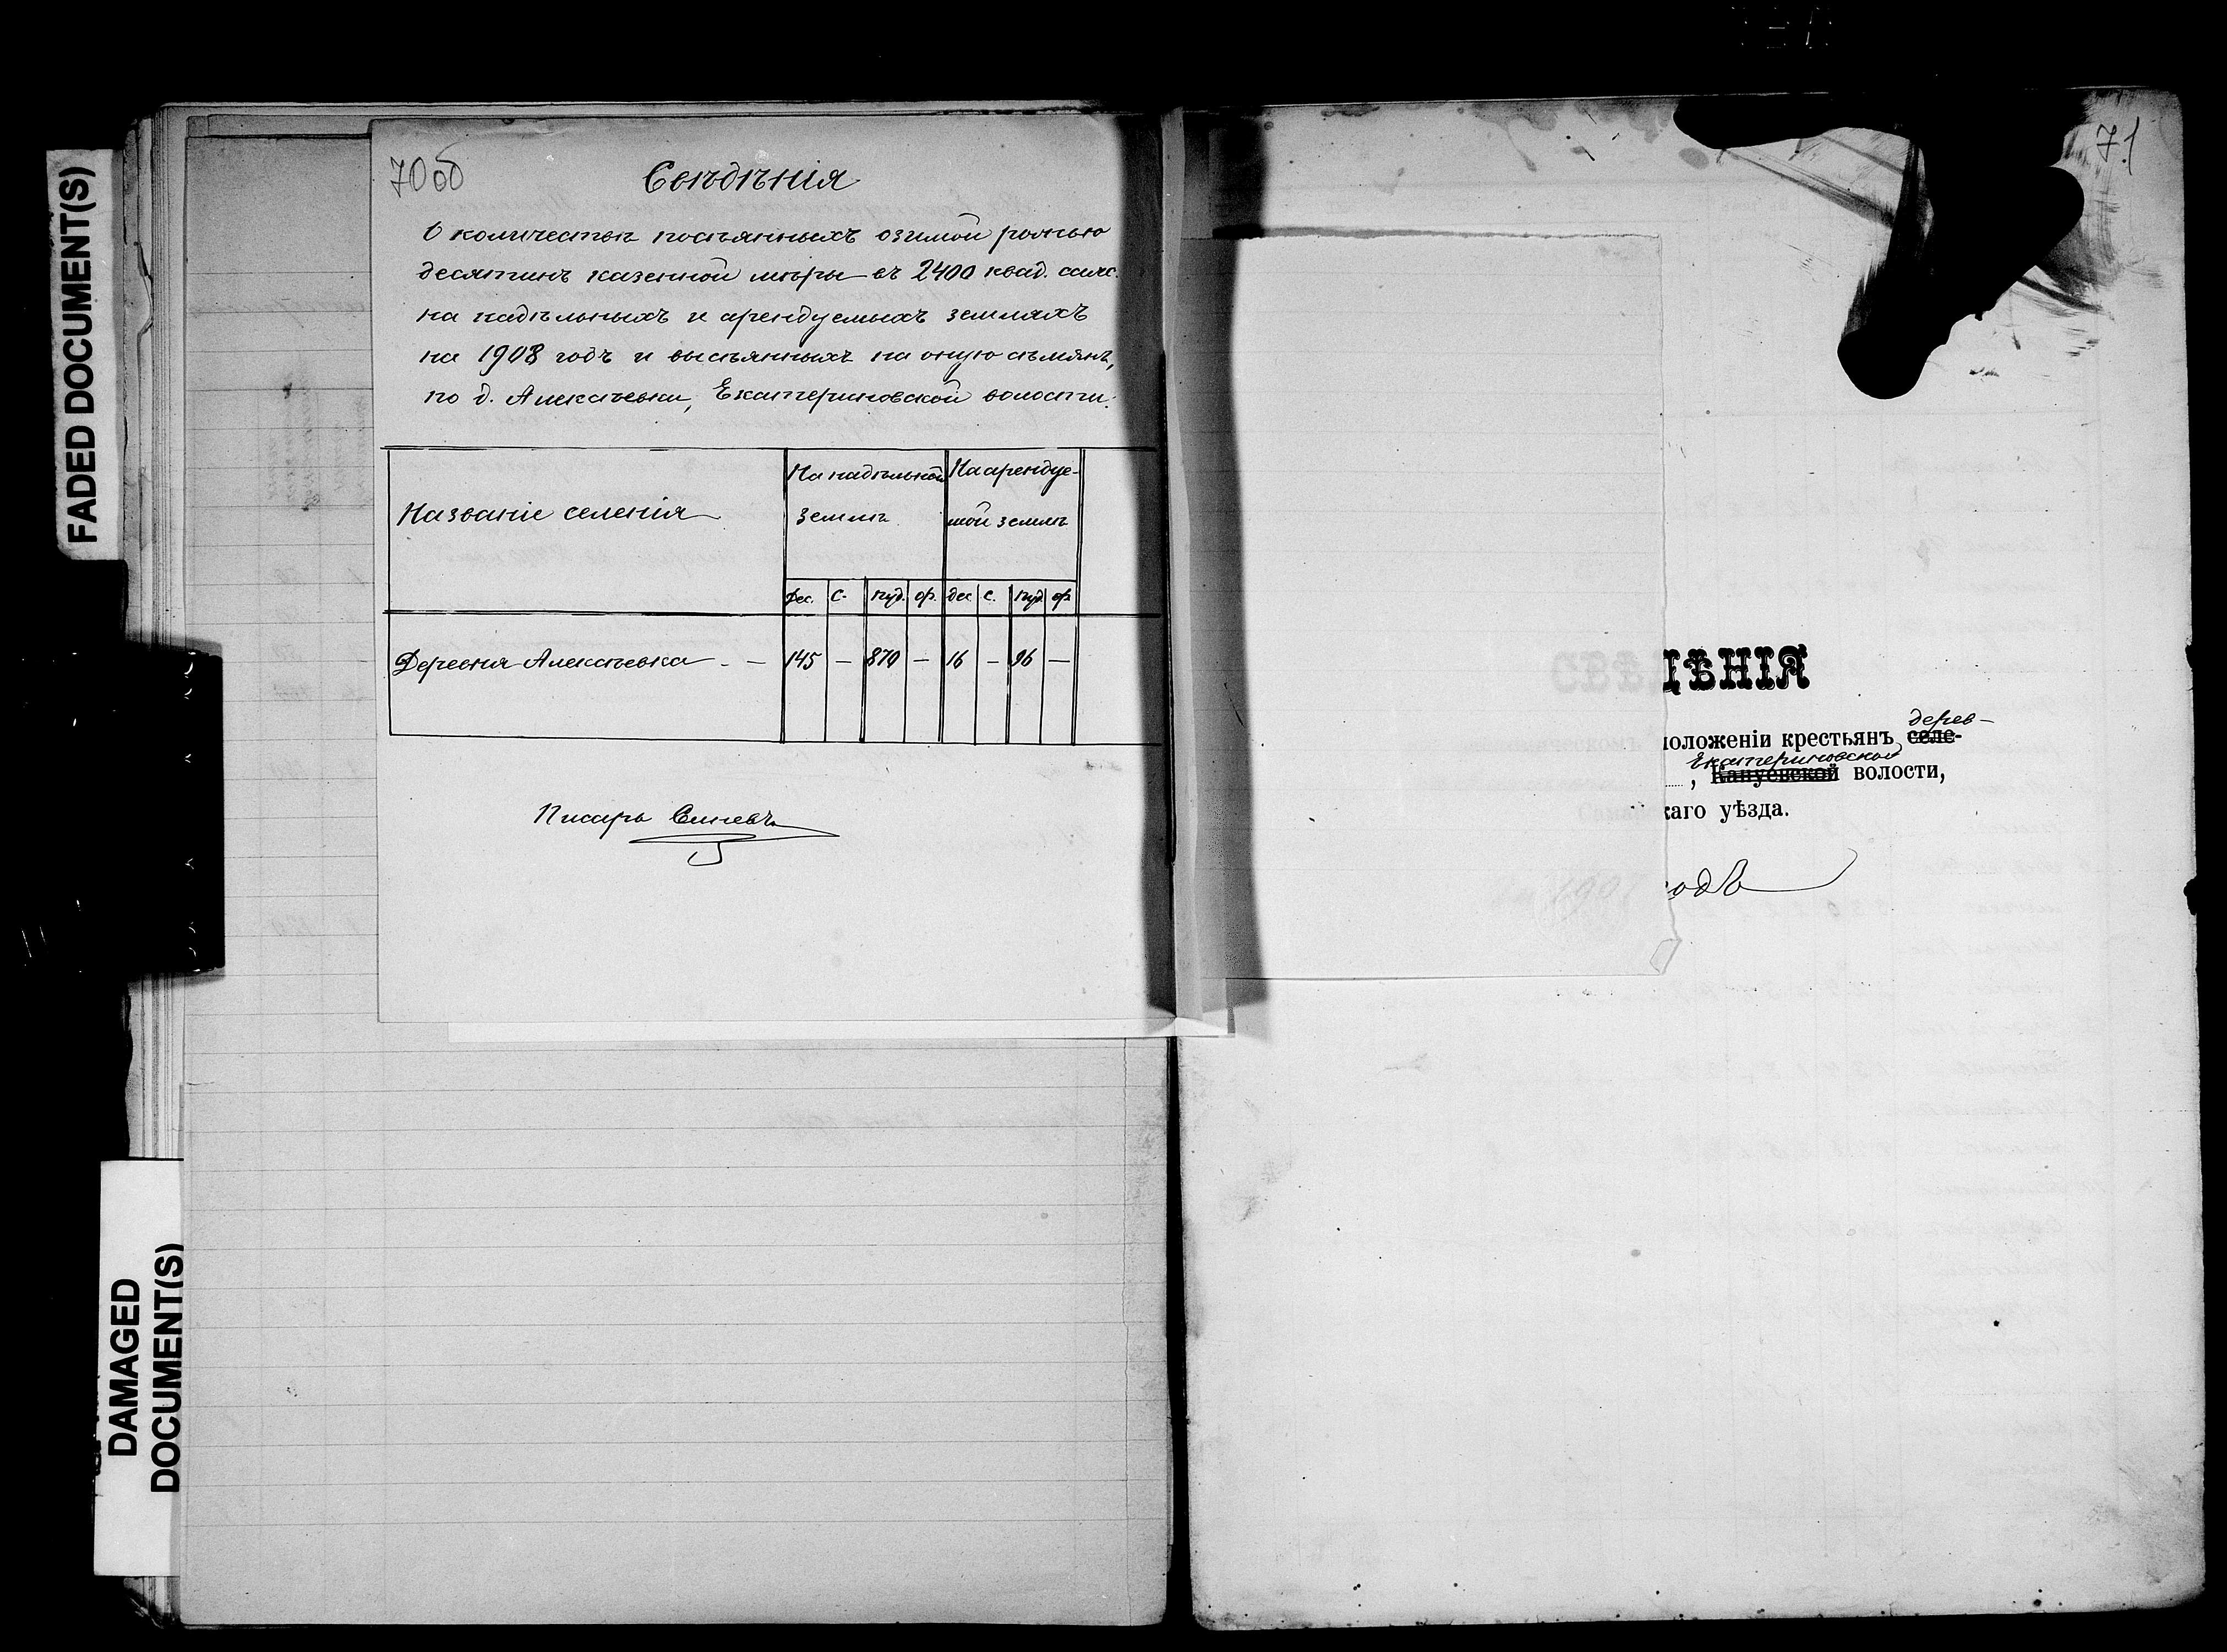 FADED DOCUMENT(S)
DAMAGED
DOCUMENT(S)
70об
Свѣдѣнія
О количествѣ посѣянныхъ озимой рожью
десятинъ казенной мѣры въ 2400 квад. саж.
на надѣльныхъ и арендуемыхъ земляхъ
на 1908 годъ и высѣянныхъ на оную сѣмянъ,
по д. Алексѣевки, Екатериновской волости.
Названіе селенія
На надѣльной
землѣ
На арендуе-
мой землѣ
Дес. С. пуд. ф. дес с. пуд ф
Деревня Алексѣевка - — 145 — 870 — 16 — 96 —
Писарь
71
СВѢДѢНІЯ
положеніи крестьянъ селе-
дерев-
Екатериновской
, Кануевской волости,
каго уѣзда.
1907
одъ